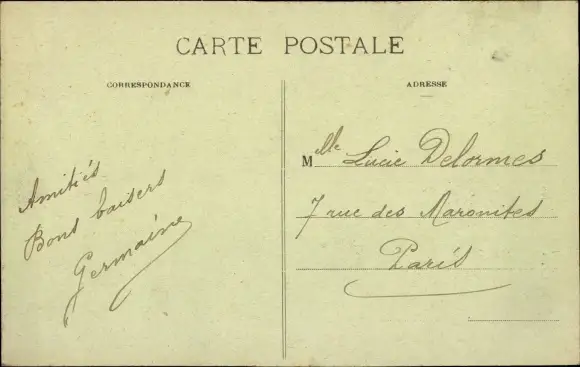 CARTE POSTALE
CORRESPONDANCE
Amitiés
Bons baisers
Germaine
ADRESSE
Melle Lucie Delormes
7 rue des Maronites
Paris